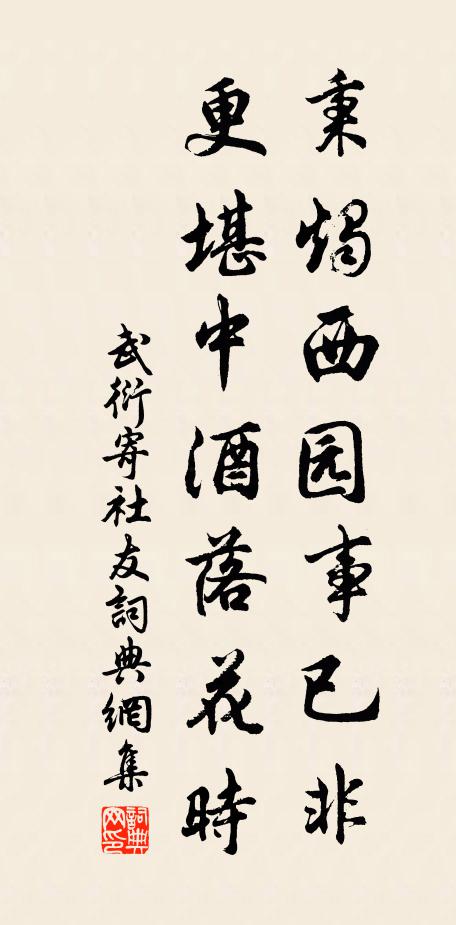 秉烛西园事已非
更堪中酒落花時
武衍寄社友詞典網集
詞典網印